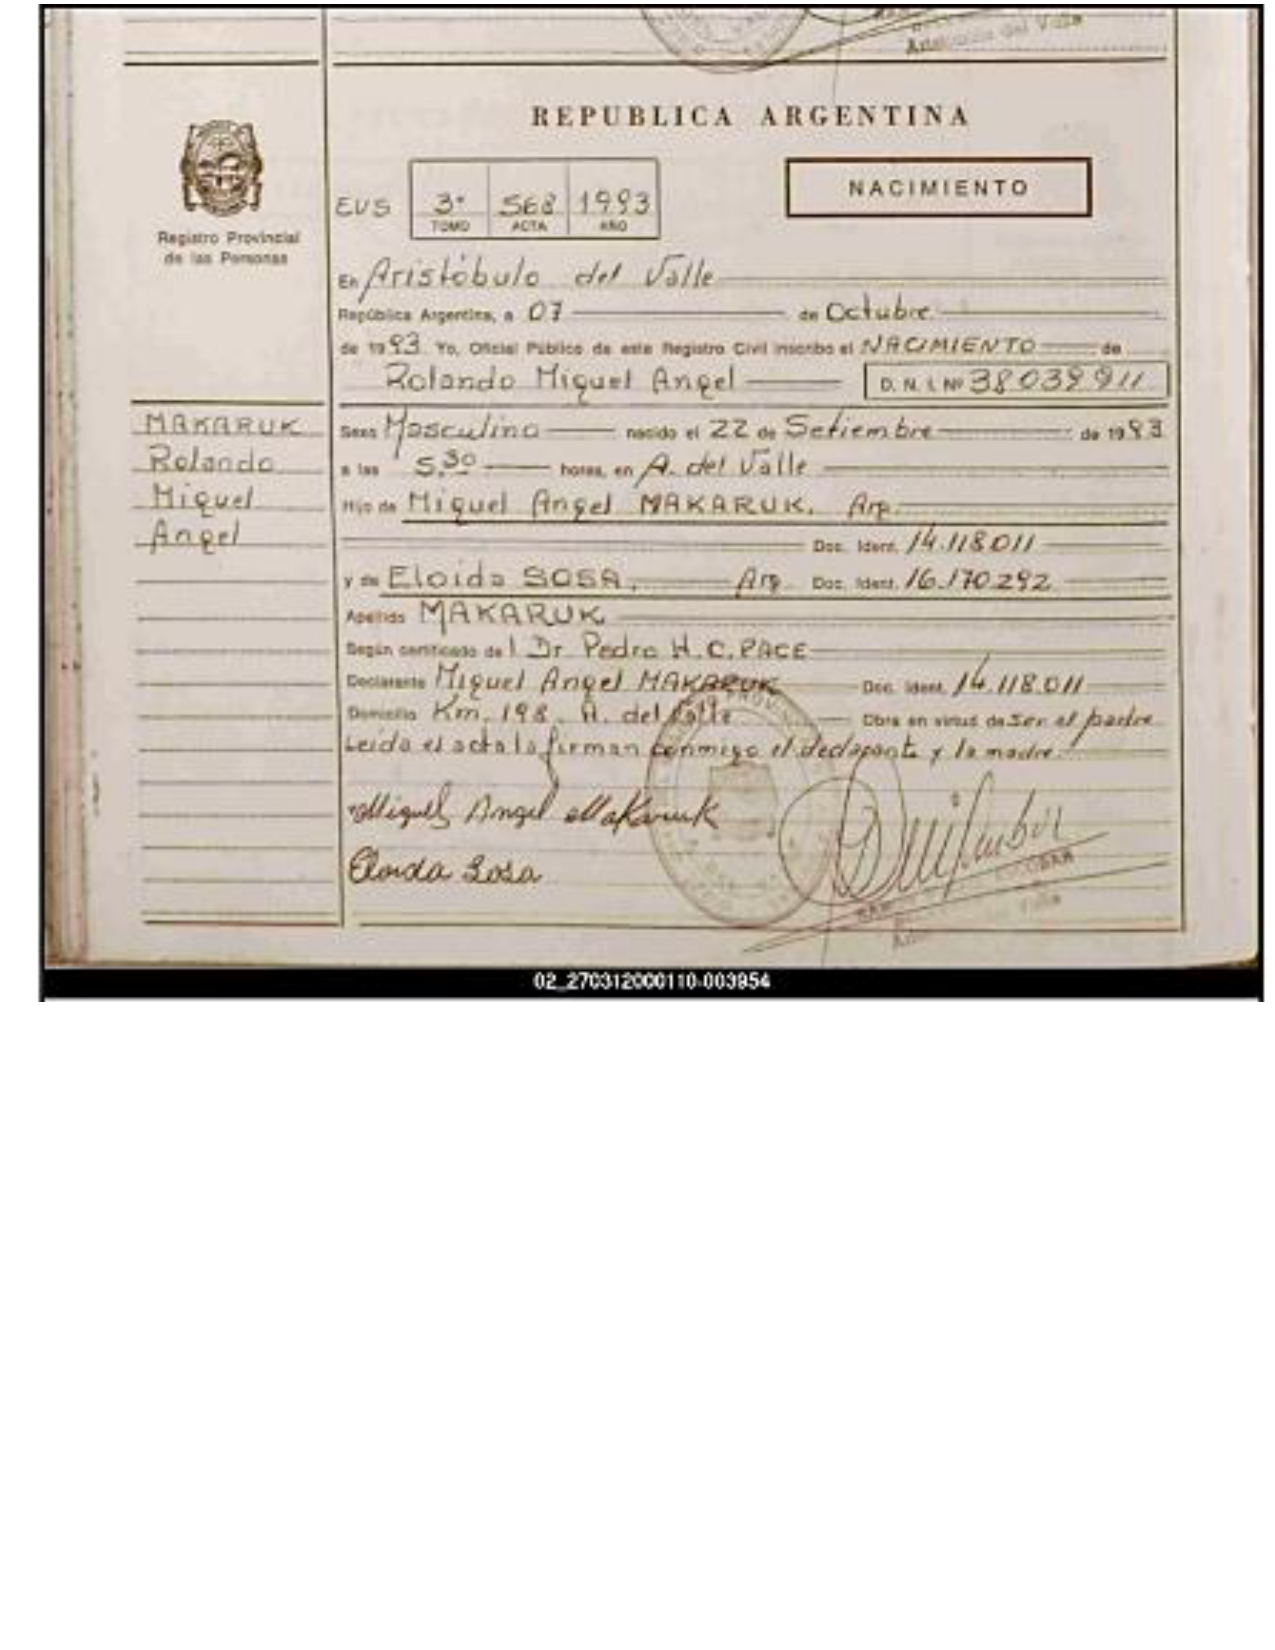 Aristóbulo del Valle
REPUBLICA ARGENTINA
NACIMIENTO
Registro Provincial
de las Personas
EVS 3° 568 1993
TOMO ACTA AÑO
En Aristóbulo del Valle
República Argentina, a 07 de Octubre
de 1993 Yo, Oficial Público de este Registro Civil inscribo el NACIMIENTO de
Rolando Miguel Angel D. N. I. Nº 38039911
MAKARUK
Rolando
Miguel
Angel
Sexo Masculino nacido el 22 de Setiembre de 1993
a las 5.30 horas, en A. del Valle
Hijo de Miguel Angel MAKARUK. Arg.
Doc. Ident. 14.118.011
y de Eloida SOSA. Arg. Doc. Ident. 16.170.292
Apellido MAKARUK
Según certificado del Dr Pedro H. C. PACE
Declarante Miguel Angel MAKARUK Doc. Ident. 14.118.011
Domicilio Km. 198. A. del Valle Obra en virtud de ser el padre
Leida el acta la firman conmigo el declarante y la madre.
Miguel Angel Makaruk
Eloida Sosa
ESCOBAR
02_270312000110-003954